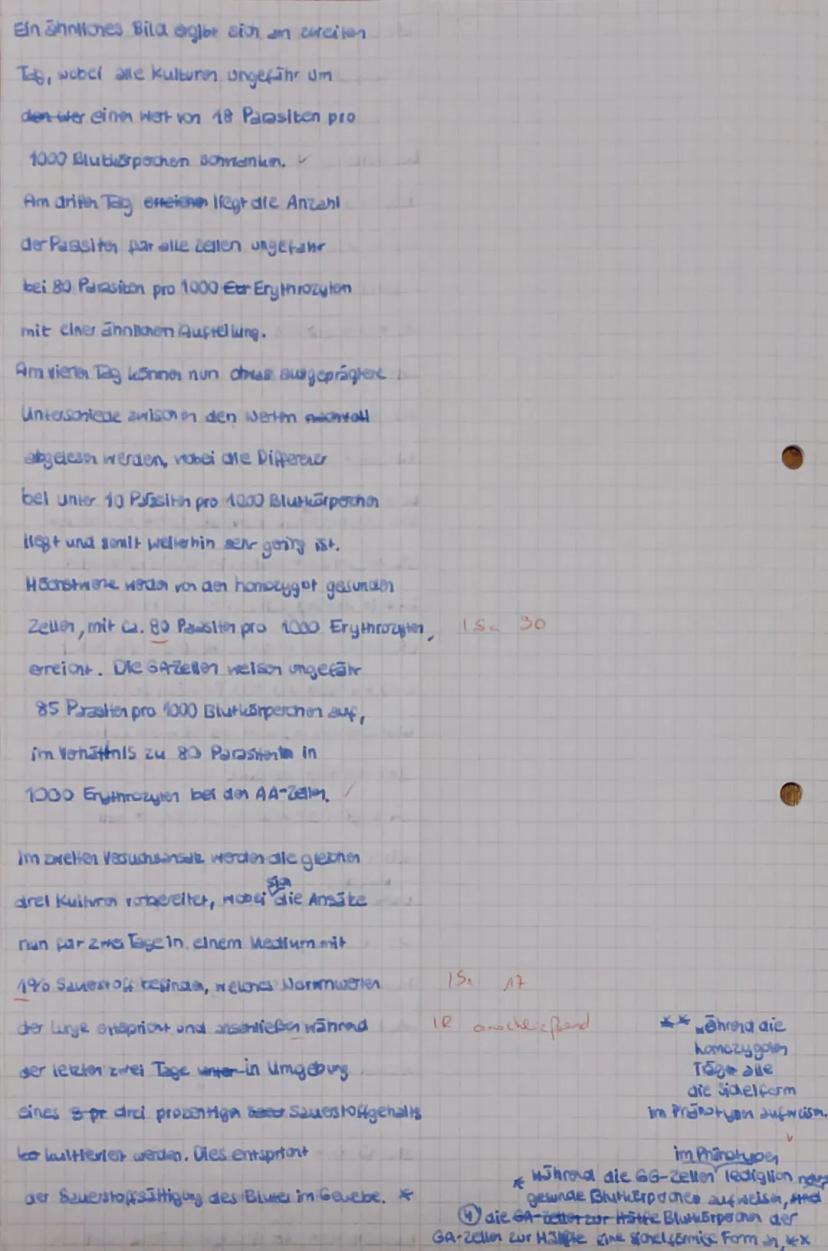 Ein ähnliches Bild ergibt sich am zweiten
Tag, wobei alle Kulturen ungefähr um
den wer einen Wert von 18 Parasiten pro
1000 Blutkörperchen schwanken. ✓
Am dritten Tag erreichen liegt die Anzahl
der Parasiten für alle Zellen ungefähr
bei 80 Parasiten pro 1000 Erythrozyten
mit einer ähnlichen Aufteilung.
Am vierten Tag können nun etwas ausgeprägtere
Unterschiede zwischen den Werten
abgelesen werden, wobei die Differenz
bei unter 10 Parasiten pro 1000 Blutkörperchen
liegt und somit weiterhin sehr gering ist.
Höchstwerte werden von den homozygot gesunden
Zellen, mit ca. 80 Parasiten pro 1000 Erythrozyten, 90
erreicht. Die GA-Zellen weisen ungefähr
85 Parasiten pro 1000 Blutkörperchen auf,
im Verhältnis zu 80 Parasiten in
1000 Erythrozyten bei den AA-Zellen. ✓
Im zweiten Versuchsansatz werden die gleichen
sich
drei Kulturen vorbereitet, wobei die Ansätze
nun für zwei Tage in einem Medium mit
1% Sauerstoff befinden, welches Normwerten 17
der Lunge entspricht und anschließen während anschließend
der letzten zwei Tage unter in Umgebung
eines drei prozentigen Sauerstoffgehalts
kultiviert werden. Dies entspricht
der Sauerstoffsättigung des Blutes im Gewebe. *
** während die
homozygoten
Träger alle
die Sichelform
im Phänotypen aufweisen.
im Phänotypen
* Während die GG-Zellen lediglich
gesunde Blutkörperchen aufweisen, sind
④ die GA-Zellen zur Hälfte Blutkörperchen der
GA-Zellen zur Hälfte eine sichelförmige Form **